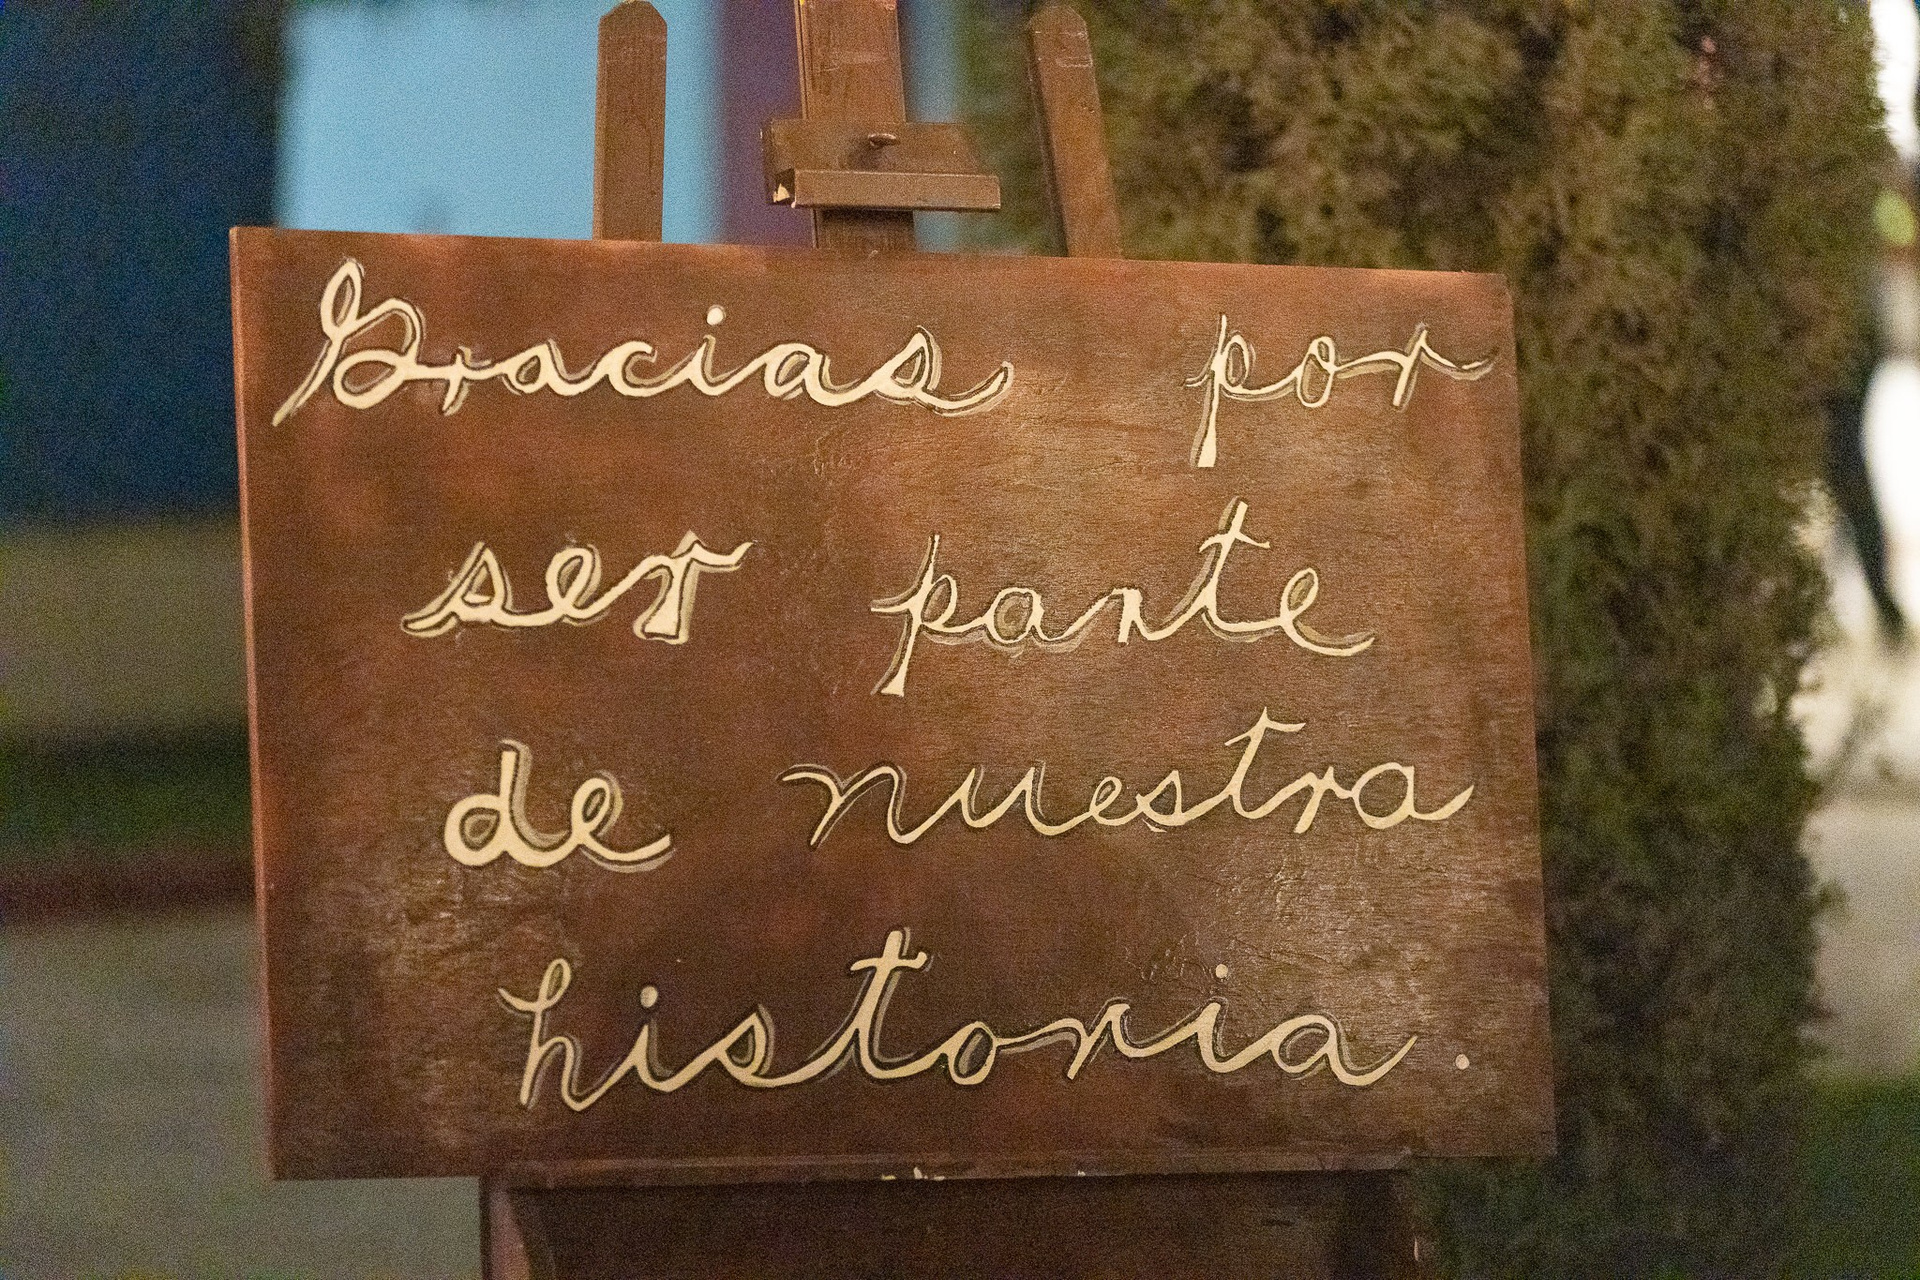 Gracias por
ser parte
de nuestra
historia.